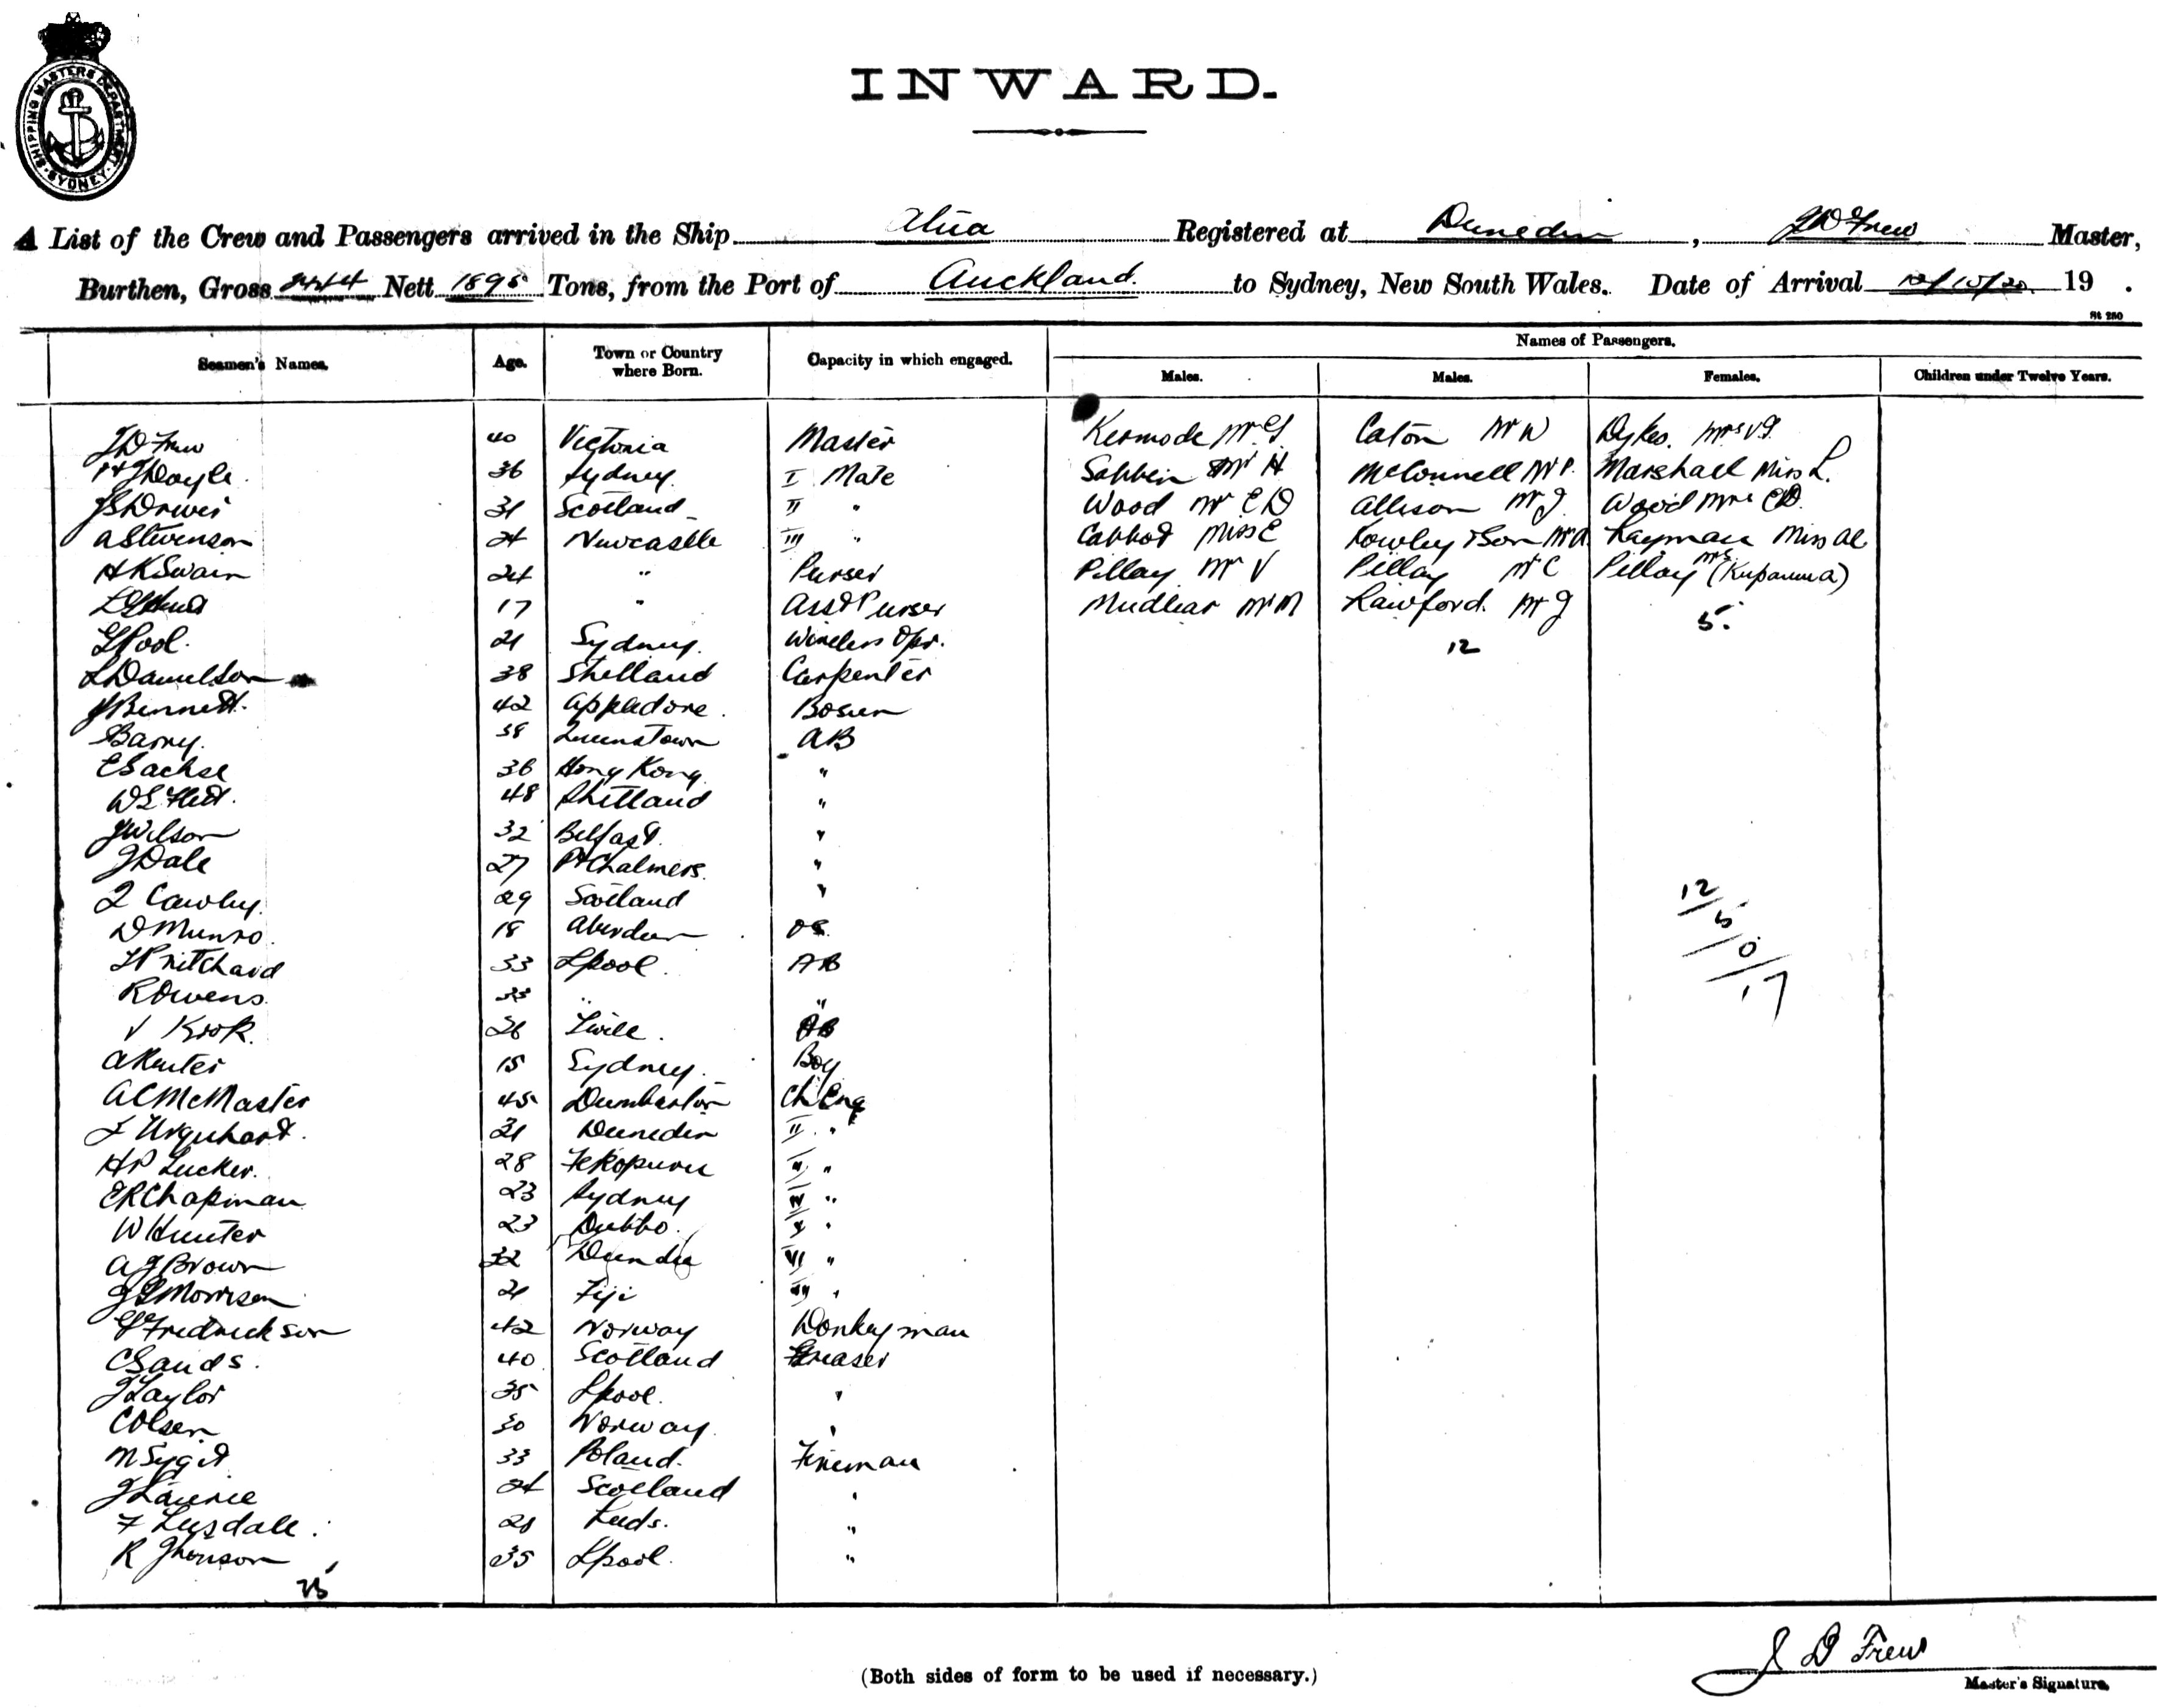 SHIPPING MASTERS DEPARTMENT SYDNEY
INWARD.
A List of the Crew and Passengers arrived in the Ship Atua Registered at Dunedin, J D Frew Master,
Burthen, Gross Nett 1895 Tons, from the Port of Auckland. to Sydney, New South Wales. Date of Arrival 19 .
St 280
Seamen's Names. Age. Town or Country where Born. Capacity in which engaged. Names of Passengers.
Males. Males. Females. Children under Twelve Years.
J D Frew 40 Victoria Master Kermode Mr Caton Mr W Dykes. Mrs
Doyle. 36 Sydney. I Mate Mr H McConnell Mr P. Marshall Miss L.
31 Scotland II " Wood Mr E D Allison Mr J Wood Mrs E D.
A Stevenson 24 Newcastle III " Miss E Layman Miss
H K Swain 24 " Purser Pillay Mr V Pillay Mr C Pillay Mrs
17 " Asst Purser Mudliar Mr M Lawford. Mr J 5.
Pool. 21 Sydney. Wireless Opr. 12
L Danielson 38 Shetland Carpenter
J Bennett. 42 Appledore. Bosun
Barry. 38 Queenstown AB
E Sachse 36 Hong Kong. "
W L Flett. 48 Shetland "
J Wilson 32 Belfast. "
J Dale 27 Pt Chalmers. "
Cawley. 29 Scotland "
D Munro. 18 Aberdeen OS.
Pritchard 33 Lpool. AB
R Owens. 33 " "
V Krook. 26 AB
A 15 Sydney. Boy
A C McMaster 45 Dumbarton Ch Eng
Urquhart. 31 Dunedin II "
H P Tucker. 28 Tekopuru III "
E R Chapman 23 Sydney IV "
W Hunter 23 Dubbo. V "
A J Brown 32 Dundee VI "
Morrison 21 Fiji VII "
Fredrickson 42 Norway Donkeyman
C Sands. 40 Scotland Greaser
J Taylor 35 Lpool. "
C Olsen 30 Norway. "
M Sygit 33 Poland. Fireman
J Laurie 24 Scotland "
F Leeds. "
R Jhonson 35 Lpool. "
12/5/0/17
(Both sides of form to be used if necessary.)
J D Frew
Master's Signature.